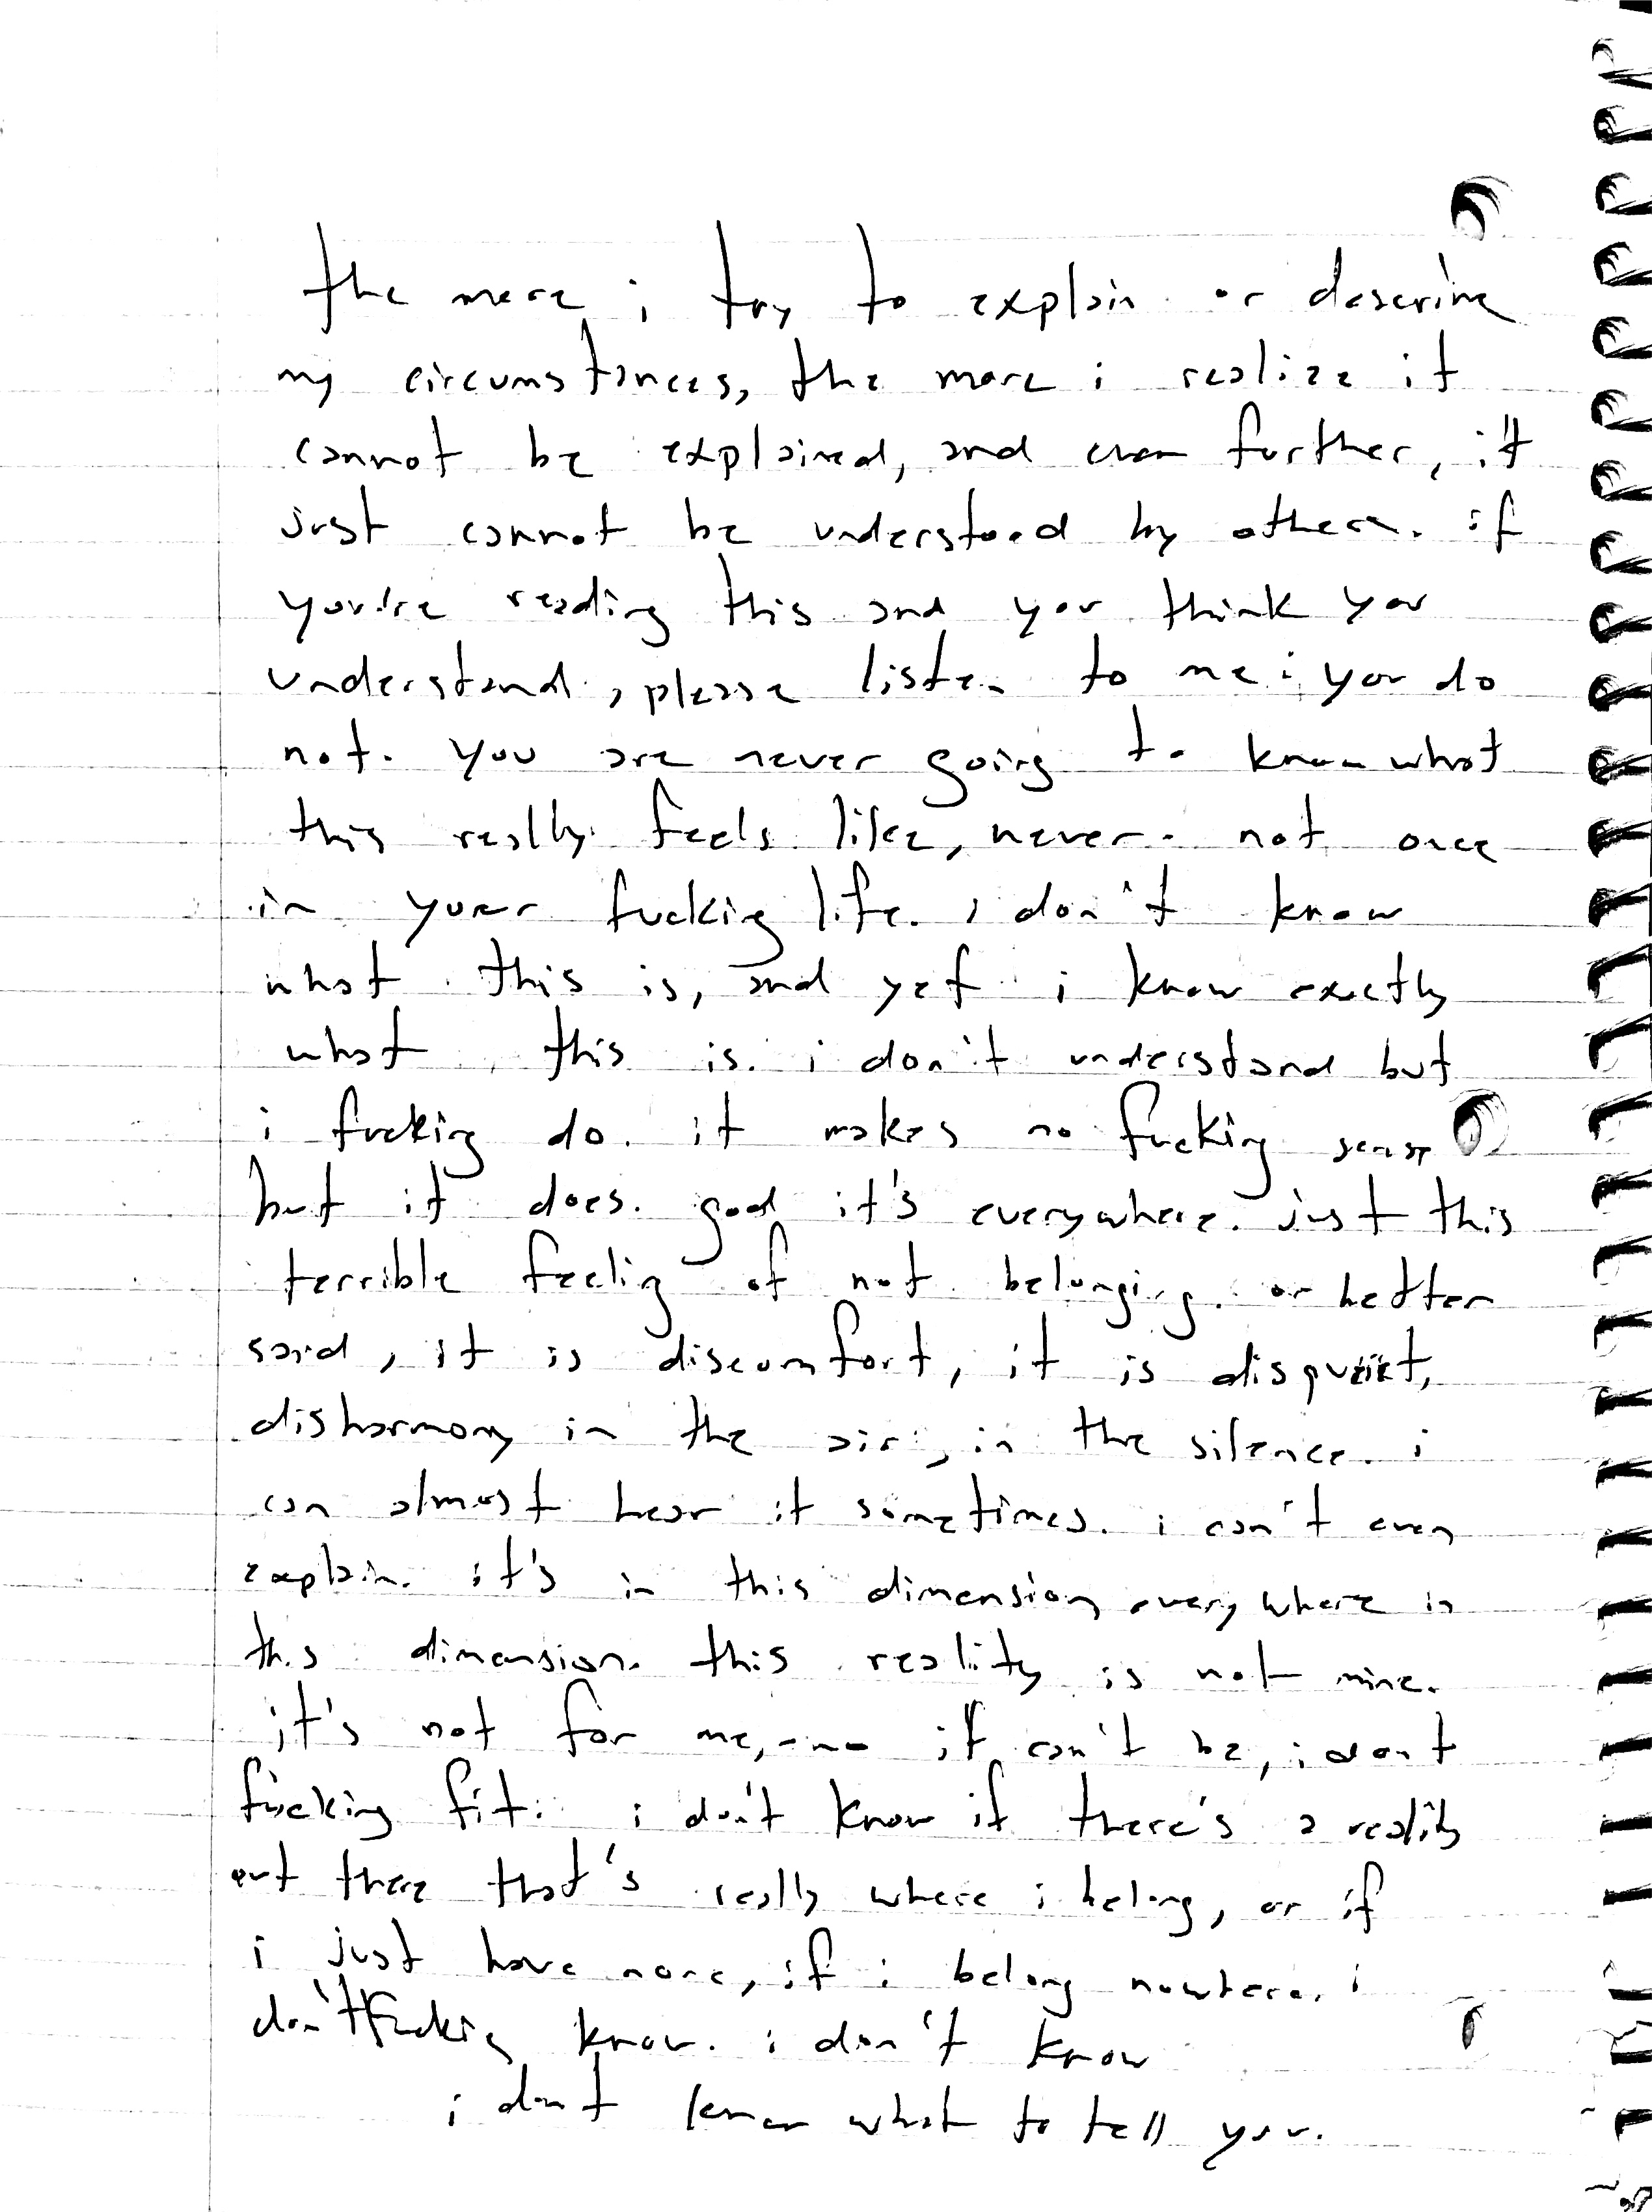 the more i try to explain or describe
my circumstances, the more i realize it
cannot be explained, and even further, it
just cannot be understood by others. if
you're reading this and you think you
understand, please listen to me: you do
not. you are never going to know what
this really feels like, never. not once
in your fucking life. i don't know
what this is, and yet i know exactly
what this is. i don't understand but
i fucking do. it makes no fucking sense
but it does. god it's everywhere. just this
terrible feeling of not belonging. or better
said, it is discomfort, it is disquiet,
disharmony in the air, in the silence. i
can almost hear it sometimes. i can't even
explain. it's in this dimension, everywhere in
this dimension. this reality is not mine.
it's not for me, no it can't be, i dont
fucking fit. i don't know if there's a reality
out there that's really where i belong, or if
i just have none, if i belong nowhere. i
don't fucking know. i don't know
i dont know what to tell you.